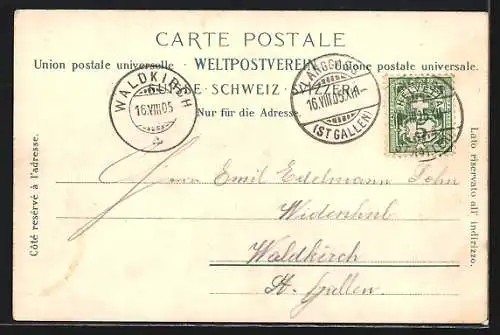 CARTE POSTALE
Union postale universelle · WELTPOSTVEREIN · Unione postale universale.
SUISSE · SCHWEIZ · SVIZZERA
Nur für die Adresse.
WALDKIRCH
16.VIII.05
LANGGASS
16.VIII.05.XII
(ST GALLEN)
HELVETIA
5
Côté reservé à l'adresse.
Lato riservato all' indirizzo.
Herrn Emil Edelmann Sohn
Waldkirch
St. Gallen.